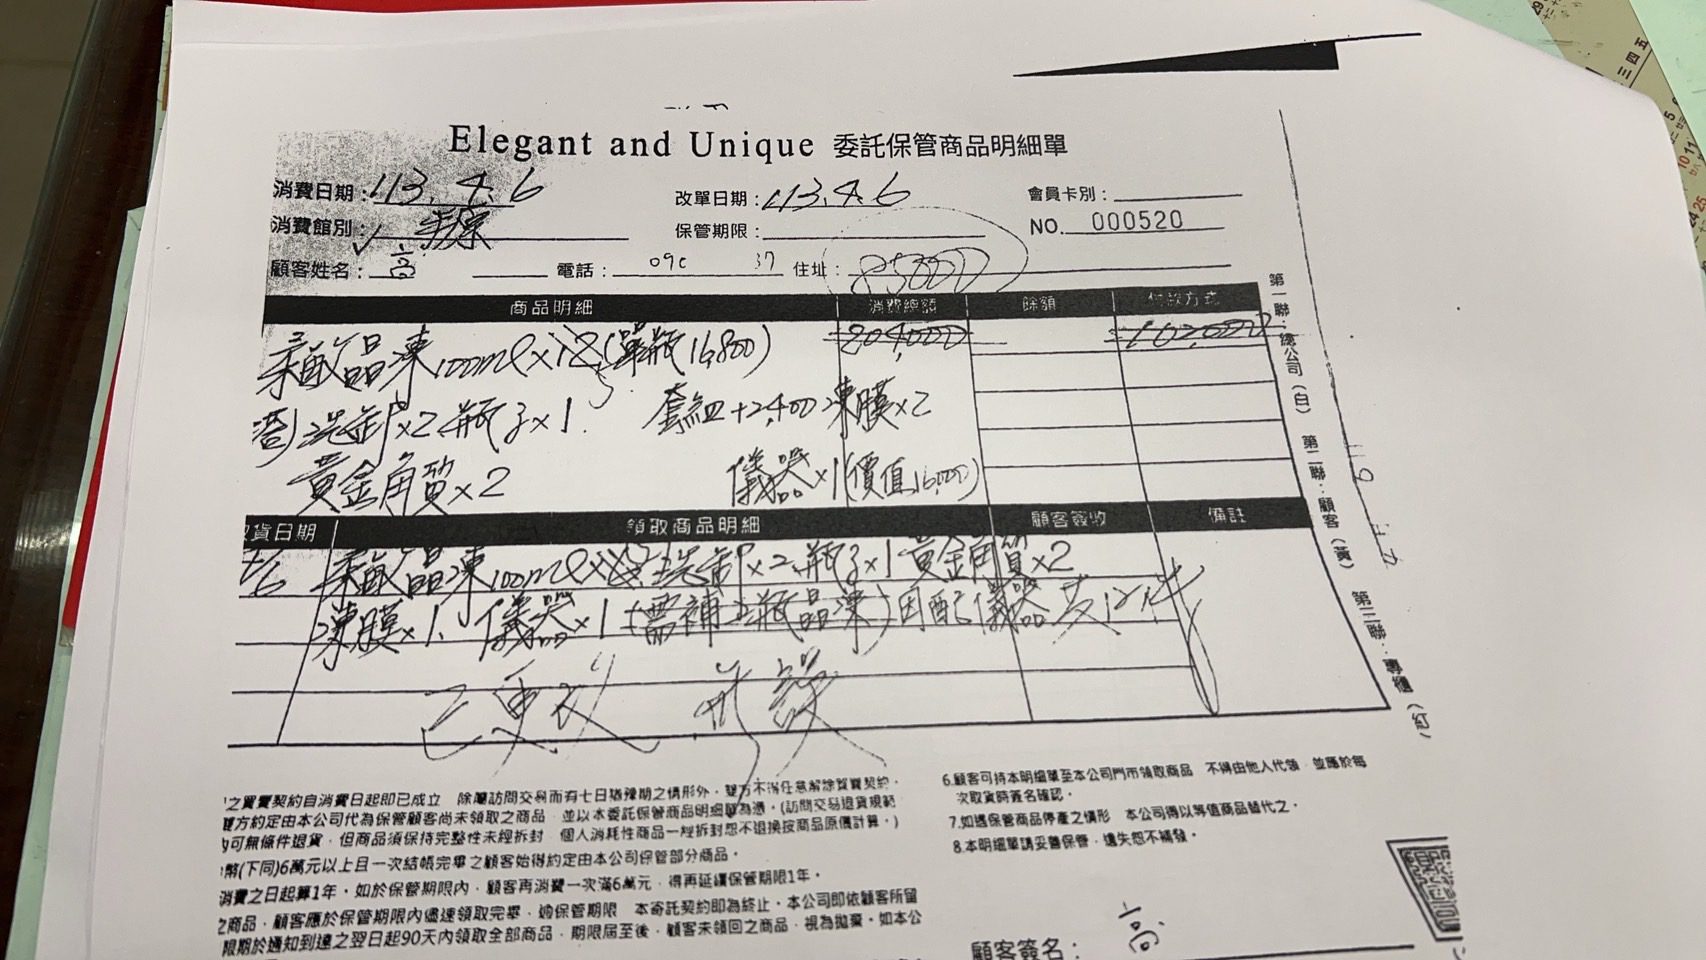 Elegant and Unique 委託保管商品明細單
消費日期：113.4.6 改單日期：113.4.6 會員卡別：
消費館別： 保管期限： NO. 000520
顧客姓名：高 電話：09 37 住址：85000
商品明細 消費總額 餘額 付款方式
晶凍100ml×12(單瓶16,800) 204,000 102,000
×2、瓶子×1 套組+2,400 凍膜×2
黃金角質×2 儀器×1(價值16,000)
取貨日期 領取商品明細 顧客簽收 備註
4/6 晶凍100ml ×2、瓶子×1 黃金角質×2
凍膜×1、儀器×1(需補 瓶晶凍)因配儀器
第一聯：總公司（白） 第二聯：顧客（黃） 第三聯：專櫃（紅）
之買賣契約自消費日起即已成立，除屬訪問交易而有七日猶豫期之情形外，雙方不得任意解除買賣契約。
雙方約定由本公司代為保管顧客尚未領取之商品，並以本委託保管商品明細單為憑。(訪問交易退貨規範
可無條件退貨，但商品須保持完整性未經拆封，個人消耗性商品一經拆封恕不退換按商品原價計算。)
幣(下同)6萬元以上且一次結帳完畢之顧客始得約定由本公司保管部分商品。
消費之日起算1年。如於保管期限內，顧客再消費一次滿6萬元，得再延續保管期限1年。
之商品，顧客應於保管期限內儘速領取完畢，逾保管期限，本寄託契約即為終止。本公司即依顧客所留
限期於通知到達之翌日起90天內領取全部商品，期限屆至後，顧客未領回之商品，視為拋棄。如本公
6.顧客可持本明細單至本公司門市領取商品，不得由他人代領，並應於每
次取貨時簽名確認。
7.如遇保管商品停產之情形，本公司得以等值商品替代之。
8.本明細單請妥善保管，遺失恕不補發。
顧客簽名：高